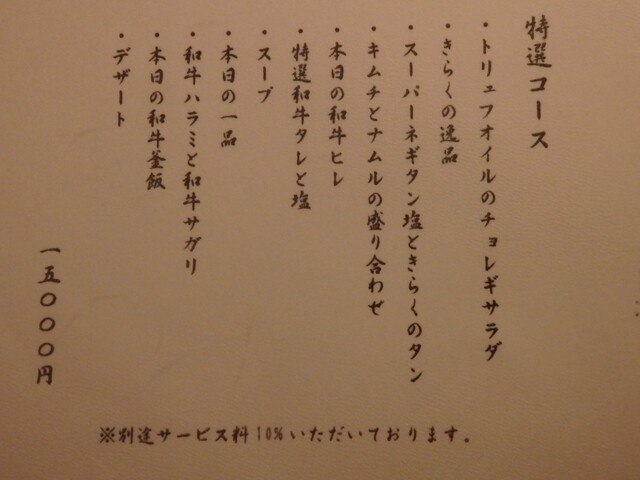 特選コース
・トリュフオイルのチョレギサラダ
・きらくの逸品
・スーパーネギタン塩ときらくのタン
・キムチとナムルの盛り合わせ
・本日の和牛ヒレ
・特選和牛タレと塩
・スープ
・本日の一品
・和牛ハラミと和牛サガリ
・本日の和牛釜飯
・デザート
一五〇〇〇円
※別途サービス料10%いただいております。